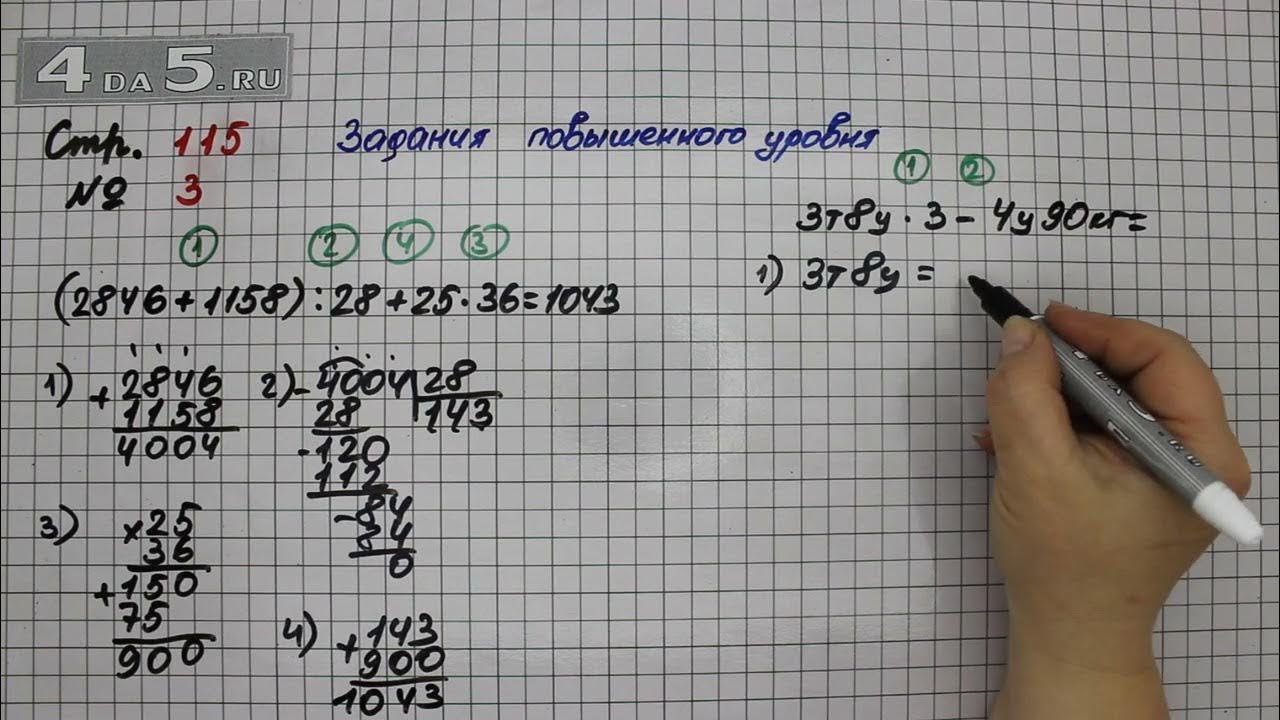 4DA5.RU
Стр. 115 Задания повышенного уровня
№ 3
① ② ④ ③
(2846+1158):28+25·36=1043
1) +2846
1158
4004
2) -4004 28
28 143
-120
112
-84
84
0
3) ×25
36
+150
75
900
4) +143
900
1043
① ②
3т8ц·3-4ц90кг=
1) 3т8ц=